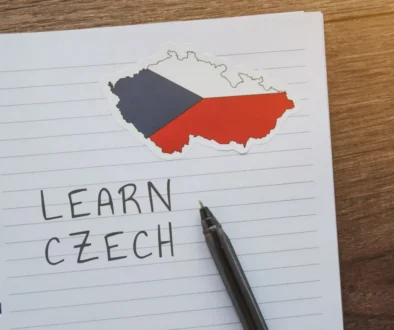 LEARN
CZECH